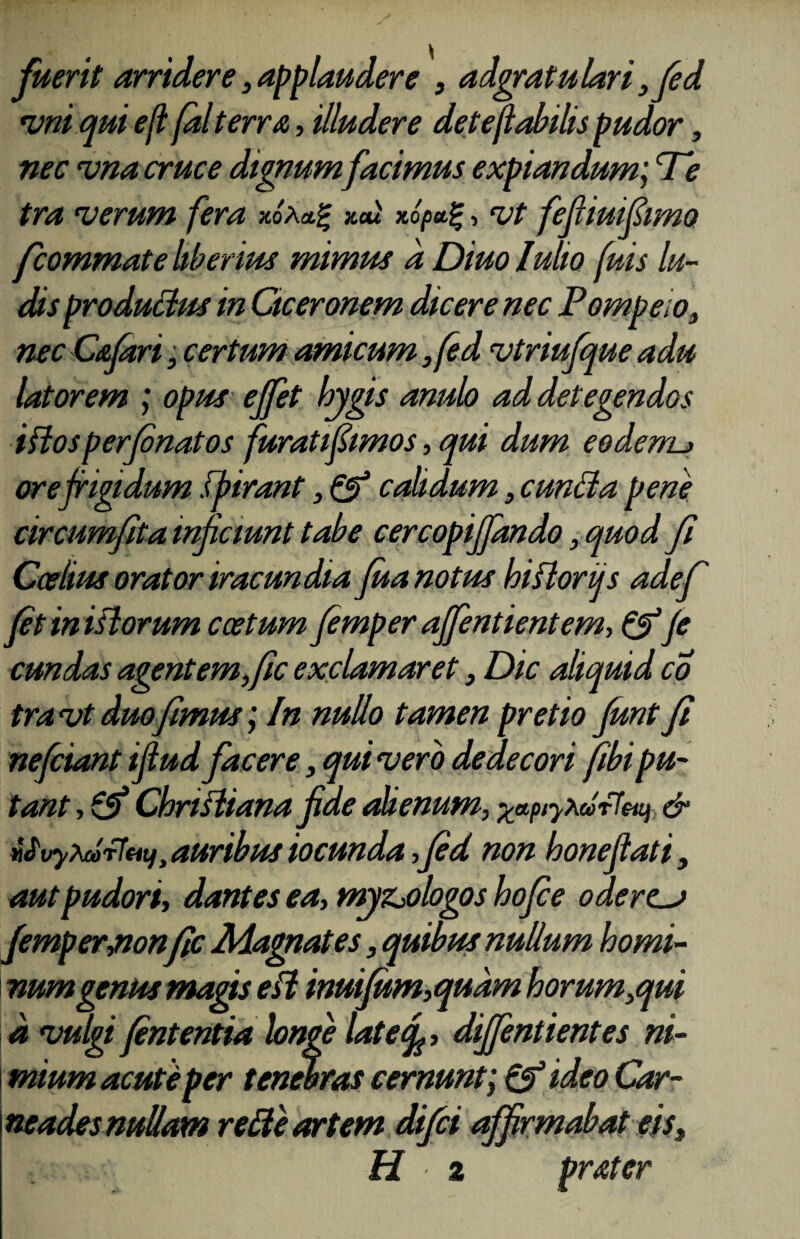 fuerit arridere, applaudere, adgratulari, ſed
vni qui eſt ſal terræ, illudere deteſtabilis pudor,
nec vna cruce dignum facimus expiandum; Te
tra verum fera κόλαξ καὶ κόραξ, vt feſtiuiſsimo
ſcommate liberius mimus à Diuo Iulio ſuis lu-
dis productus in Ciceronem dicere nec Pompeio,
nec Cæſari, certum amicum, ſed vtriuſque adu
latorem ; opus eſſet hygis anulo ad detegendos
iſtos perſonatos furatiſsimos, qui dum eodem
ore frigidum ſpirant, & calidum, cuncta penè
circumſita inficiunt tabe cercopiſſando, quod ſi
Cœlius orator iracundia ſua notus hiſtorijs adeſ
ſet in iſtorum cœtum ſemper aſſentientem, & ſe
cundas agentem, ſic exclamaret, Dic aliquid cō
tra vt duo ſimus; In nullo tamen pretio ſunt ſi
neſciant iſtud facere, qui verò dedecori ſibi pu-
tant, & Chriſtiana fide alienum, χαριγλῶτται, &
ἡδυγλῶτται, auribus iocunda, ſed non honeſtati,
aut pudori, dantes ea, myzologos hoſce odere
ſemper, non ſic Magnates, quibus nullum homi-
num genus magis eſt inuiſum, quàm horum, qui
à vulgi ſententia longè lateq;, diſſentientes ni-
mium acutè per tenebras cernunt; & ideo Car-
neades nullam rectè artem diſci affirmabat eis,
H 2 præter